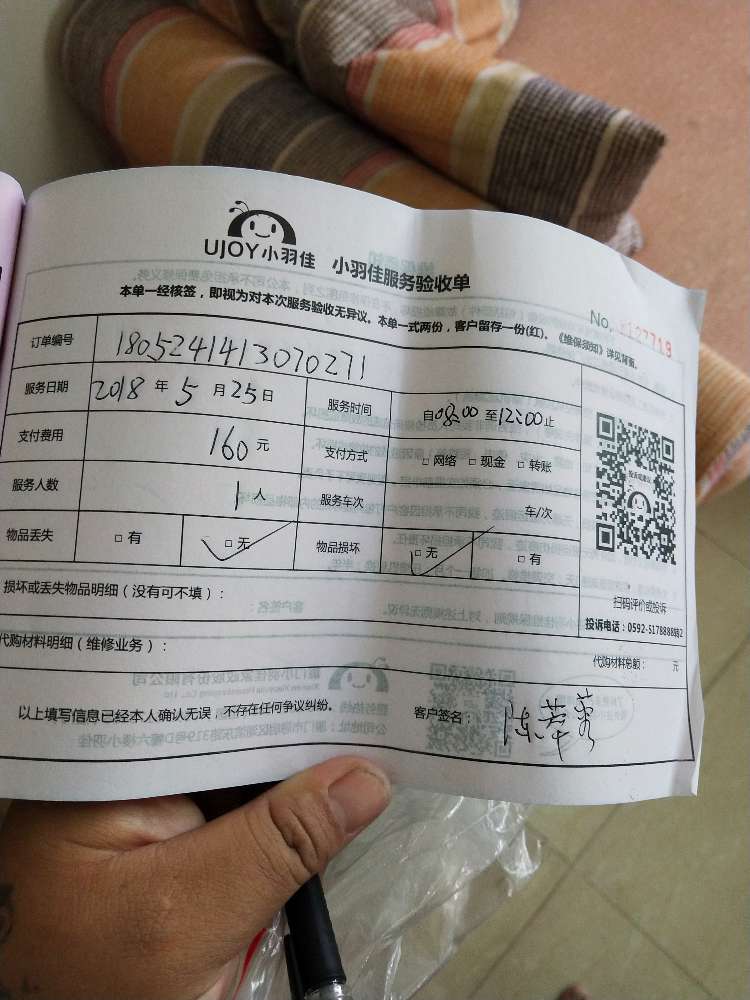 UJOY小羽佳 小羽佳服务验收单
本单一经核签，即视为对本次服务验收无异议。本单一式两份，客户留存一份(红)。《维保须知》详见背面。
No.
订单编号 1805241413070271
服务日期 2018 年 5 月 25 日 服务时间 自08:00 至12:00止
支付费用 160 元 支付方式 □ 网络 □ 现金 □ 转账
服务人数 1 人 服务车次 车/次
物品丢失 □ 有 □ 无 物品损坏 □ 无 □ 有
投诉或建议
扫码评价或投诉
损坏或丢失物品明细（没有可不填）：
投诉电话：0592-5178888转2
代购材料明细（维修业务）： 代购材料总额： 元
以上填写信息已经本人确认无误，不存在任何争议纠纷。 客户签名：陈